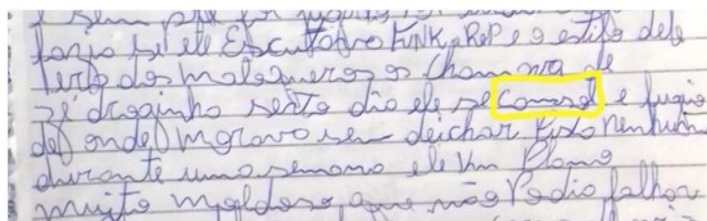 fazia si ele Escultava FUNK, RAP e o estilo dele
Perto dos maloqueros os chamava de
zé droginha serto dia ele se cansol e fugio
de onde morava sem deichar Pista nenhum
durante uma semana ele Um Plano
muito maldoso que não Podia falhar